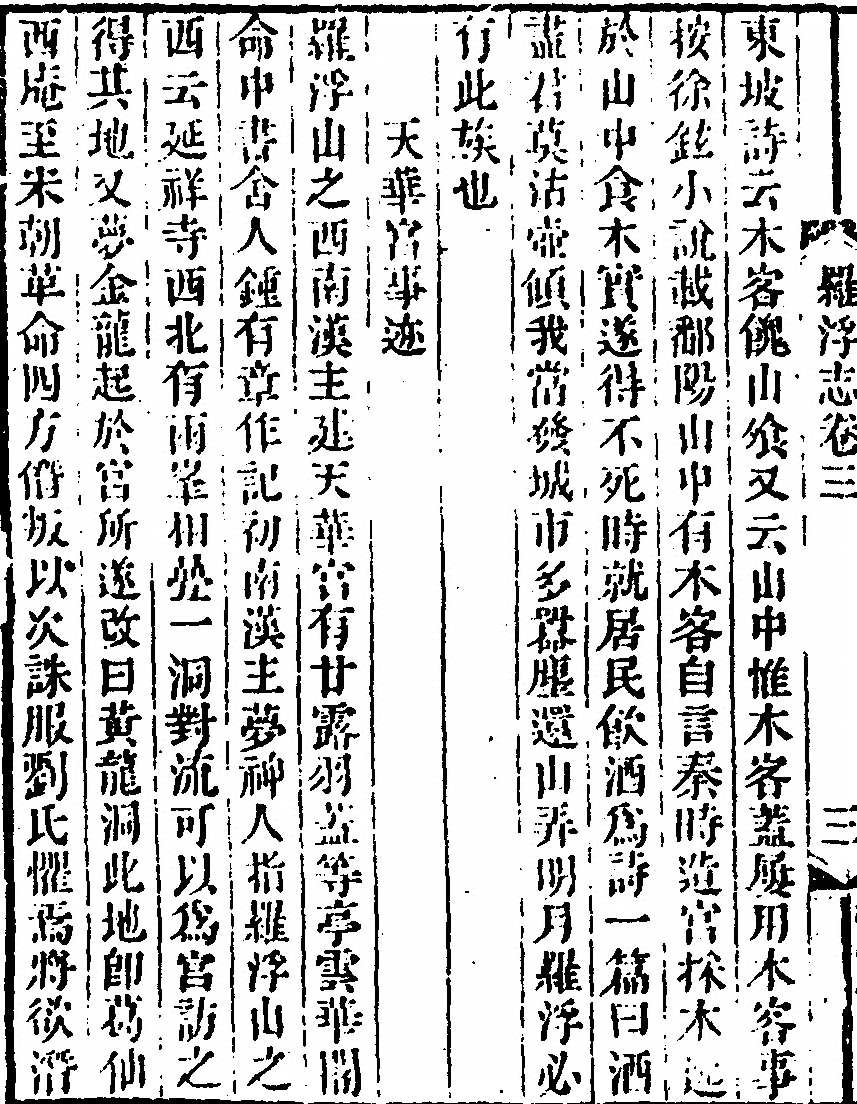 羅浮志卷三　三
東坡詩云木客傀山飧又云山中惟木客蓋屢用木客事
按徐鉉小說載鄱陽山中有木客自言秦時造宮採木
於山中食木實遂得不死時就居民飲酒為詩一篇曰酒
盡君莫沽壺傾我當發城市多囂塵還山弄明月羅浮必
有此族也
天華宮事迹
羅浮山之西南漢主建天華宮有甘露羽蓋等亭雲華閣
命中書舍人鍾有章作記初南漢主夢神人指羅浮山之
西云延祥寺西北有兩峯相疊一洞對流可以為宮訪之
得其地又夢金龍起於宮所遂改曰黃龍洞此地即葛仙
西庵至宋朝革命四方僭叛以次誅服劉氏懼焉將欲潛